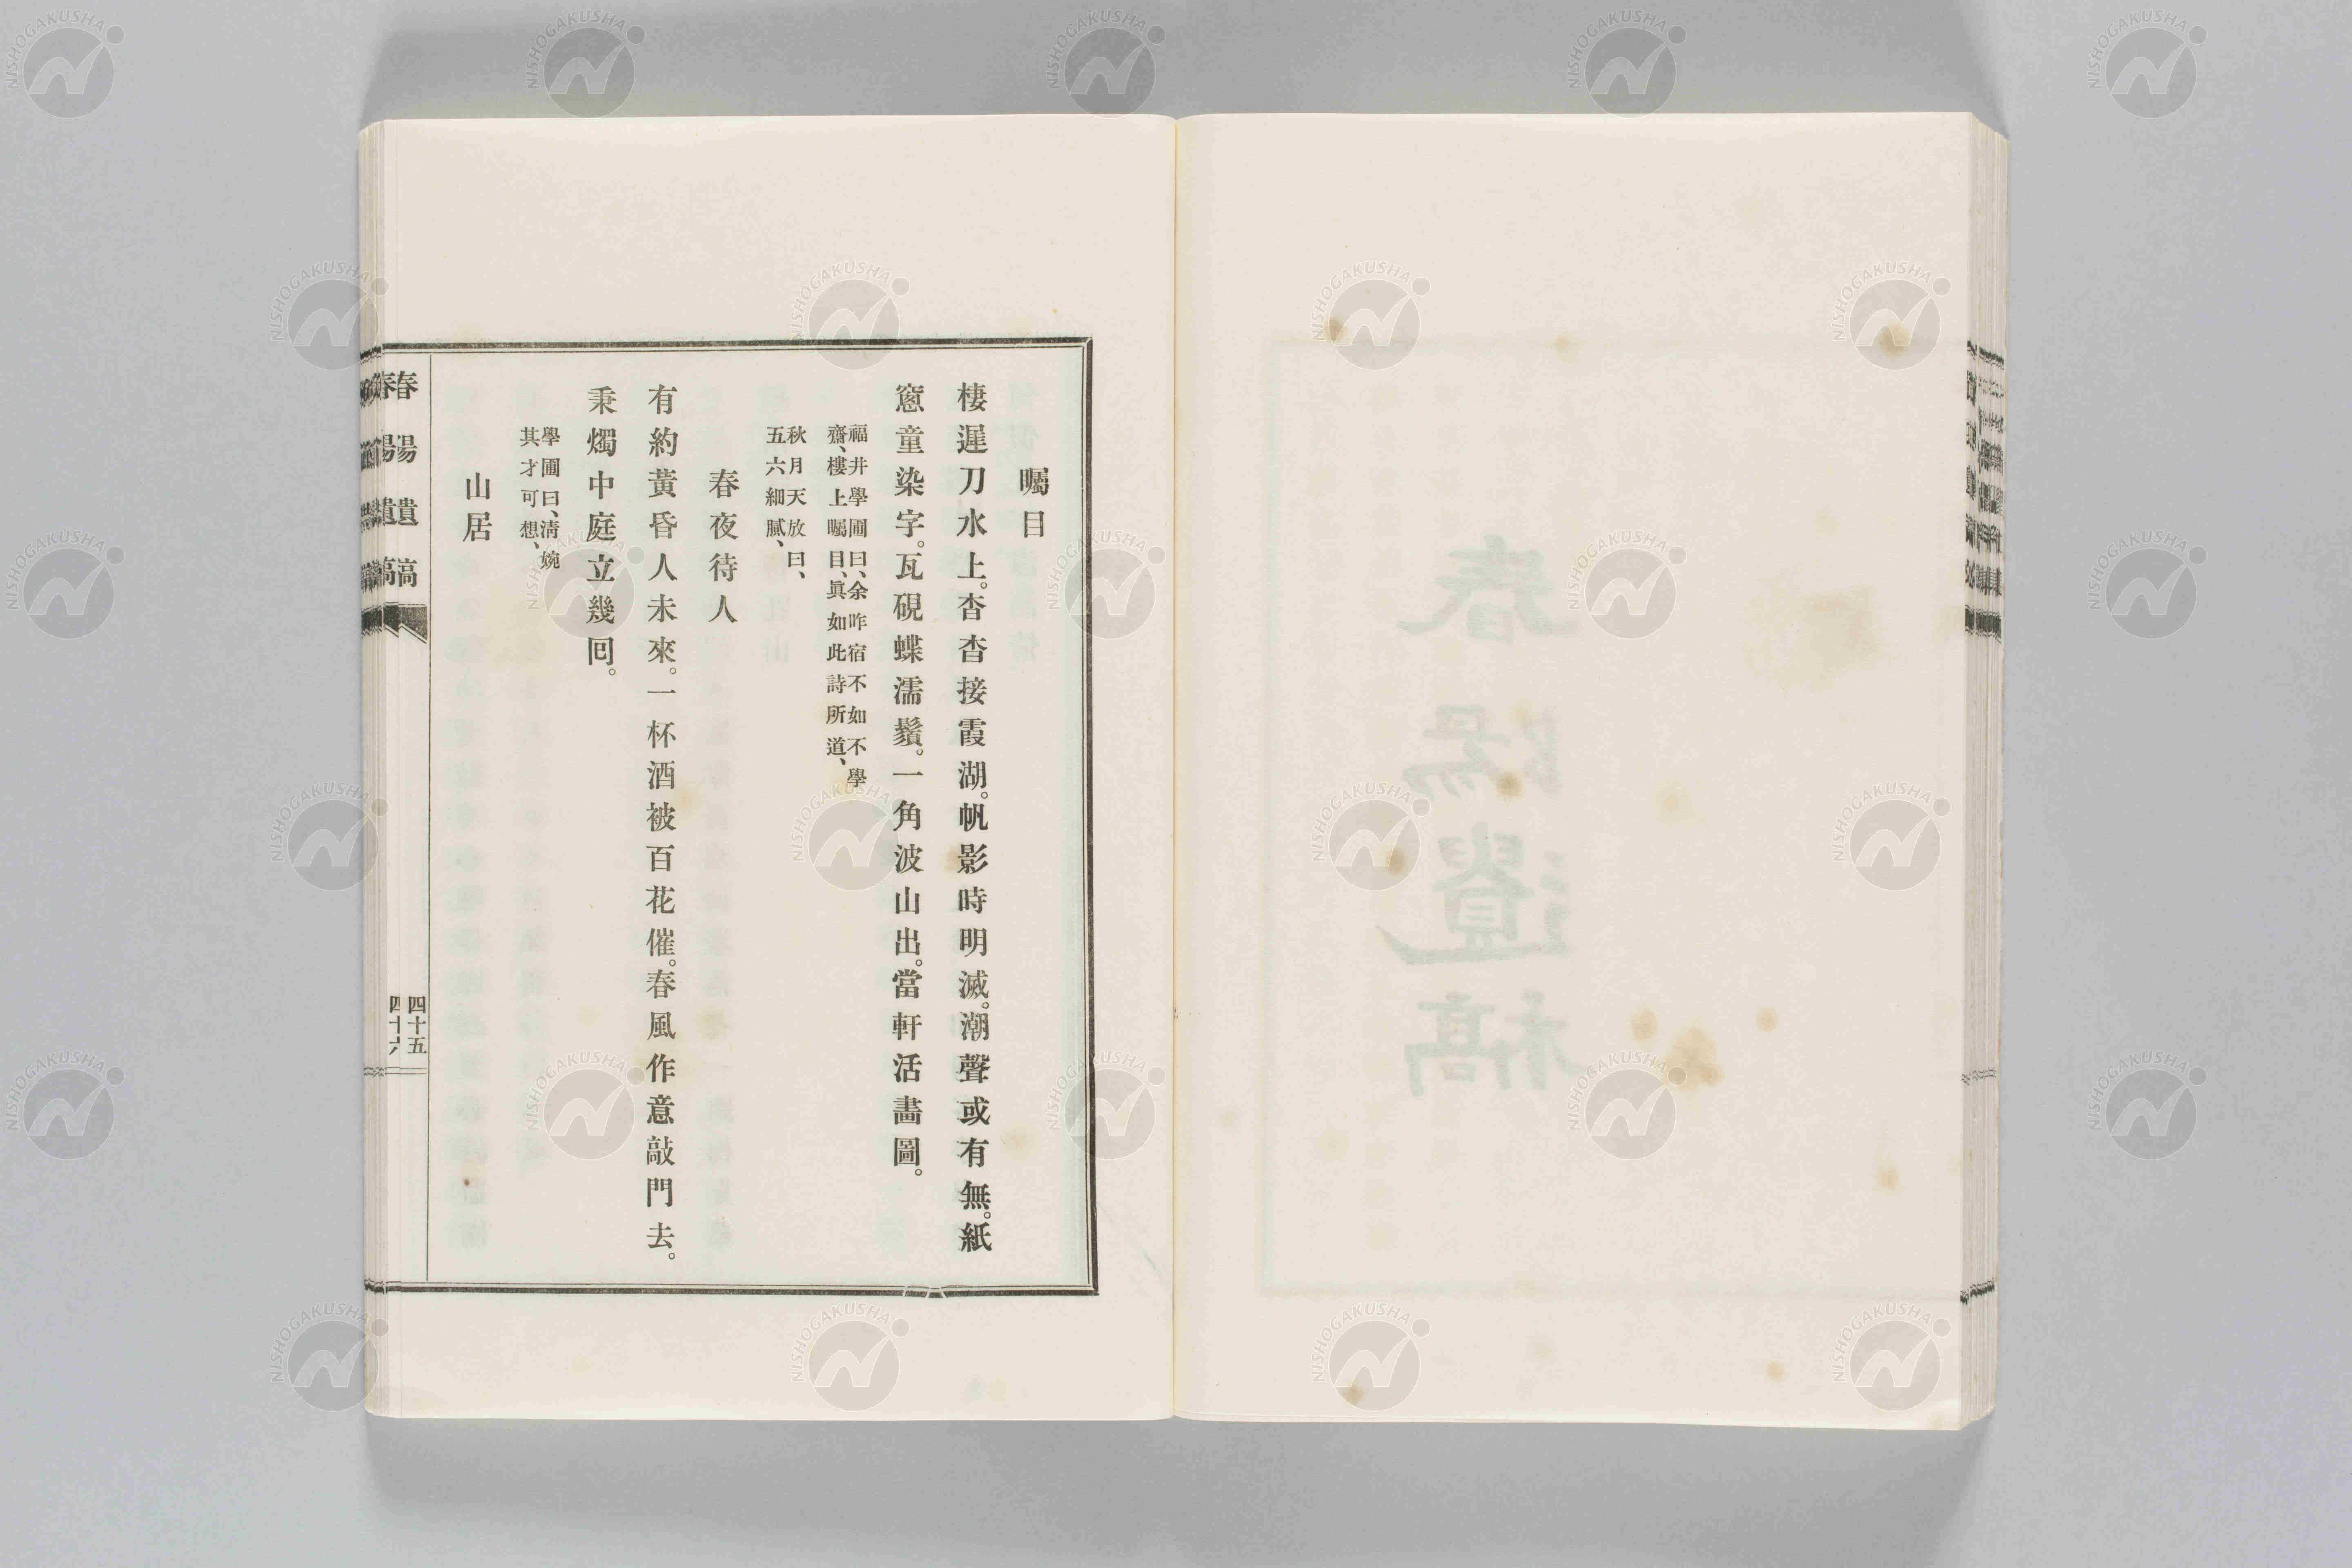 囑目
棲遲刀水上。杳杳接霞湖。帆影時明滅。潮聲或有無。紙
窻童染字。瓦硯蝶濡鬚。一角波山出。當軒活畵圖。
福井學圃曰、余昨宿不如不學
齋、樓上囑目、眞如此詩所道、
秋月天放曰、
五六細膩、
春夜待人
有約黃昏人未來。一杯酒被百花催。春風作意敲門去。
秉燭中庭立幾回。
學圃曰、淸婉
其才可想、
山居
春陽遺稿
四十五
四十六
春陽遺稿
NISHOGAKUSHA